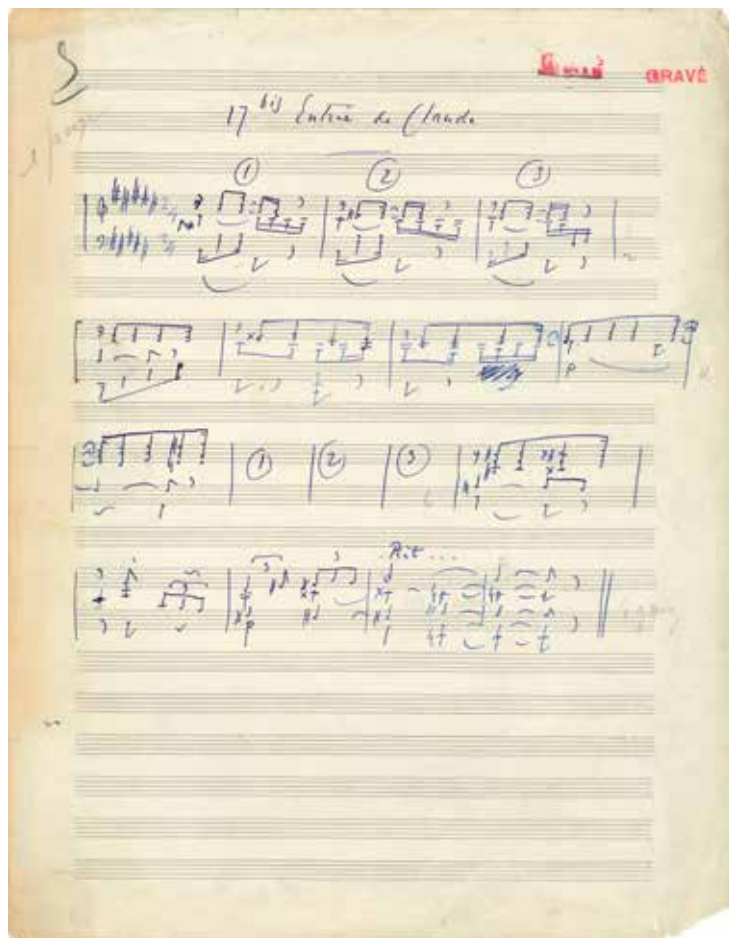 GRAVÉ GRAVÉ
17 bis Entrée de Claude
① ② ③
① ② ③
Rit...